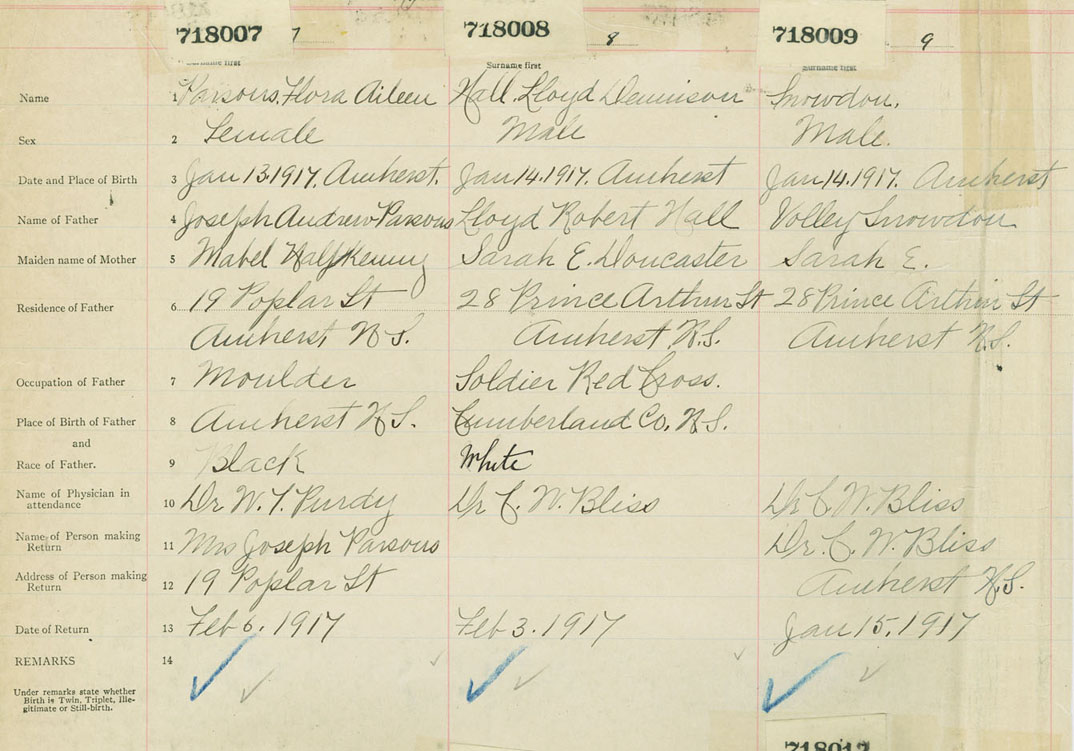 718007 7 718008 8 718009 9
Surname first Surname first Surname first
Name 1 Parsons, Flora Aileen Hall, Lloyd Dennison Snowdon,
Sex 2 Female Male Male.
Date and Place of Birth 3 Jan 13.1917. Amherst. Jan 14.1917. Amherst Jan 14.1917. Amherst
Name of Father 4 Joseph Andrew Parsons Lloyd Robert Hall Volley Snowdon
Maiden name of Mother 5 Mabel Halfkenny Sarah E. Doncaster Sarah E.
Residence of Father 6 19 Poplar St 28 Prince Arthur St 28 Prince Arthur St
Amherst N.S. Amherst N.S. Amherst N.S.
Occupation of Father 7 Moulder Soldier Red Cross.
Place of Birth of Father 8 Amherst N.S. Cumberland Co. N.S.
and
Race of Father. 9 Black White
Name of Physician in
attendance 10 Dr W. T. Purdy Dr C. W. Bliss Dr C. W. Bliss
Name of Person making
Return 11 Mrs Joseph Parsons Dr. C. W. Bliss
Address of Person making
Return 12 19 Poplar St Amherst N.S.
Date of Return 13 Feb 6. 1917 Feb 3. 1917 Jan 15. 1917
REMARKS 14
Under remarks state whether
Birth is Twin, Triplet, Ille-
gitimate or Still-birth.